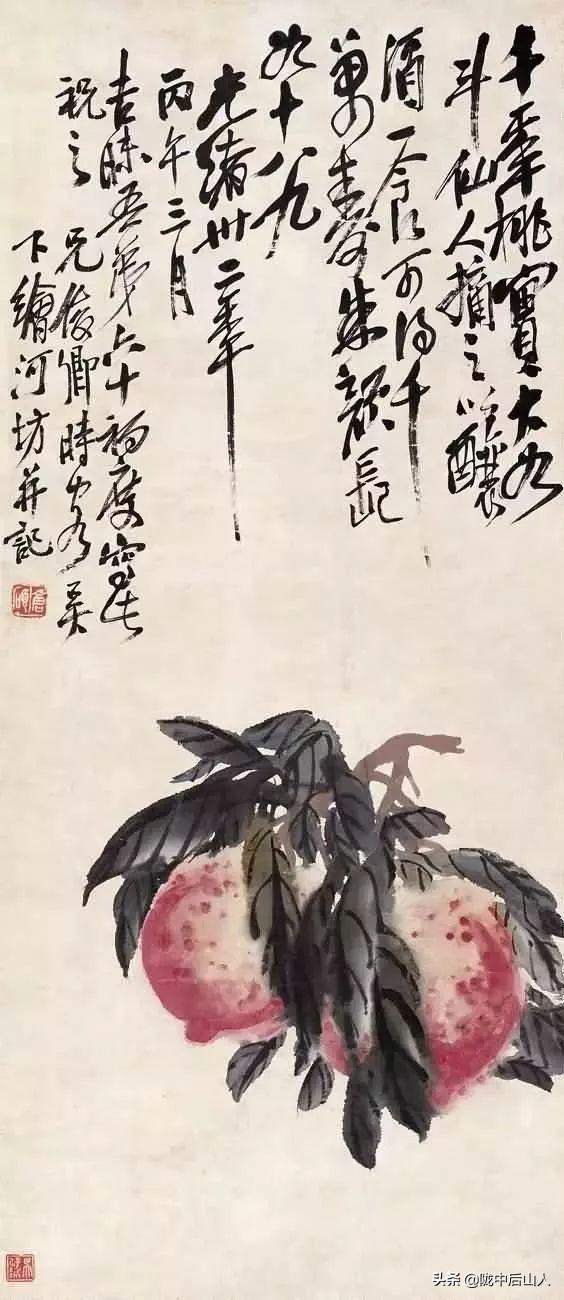 千年桃實大如
斗仙人摘之以釀
酒一食可得千
萬壽朱顏長
如十八九
光緒卅二年
丙午三月
吾弟六十初度寫此
祝之 兄俊卿時客吳
下繪河坊并記
倉碩
头条 @陇中后山人